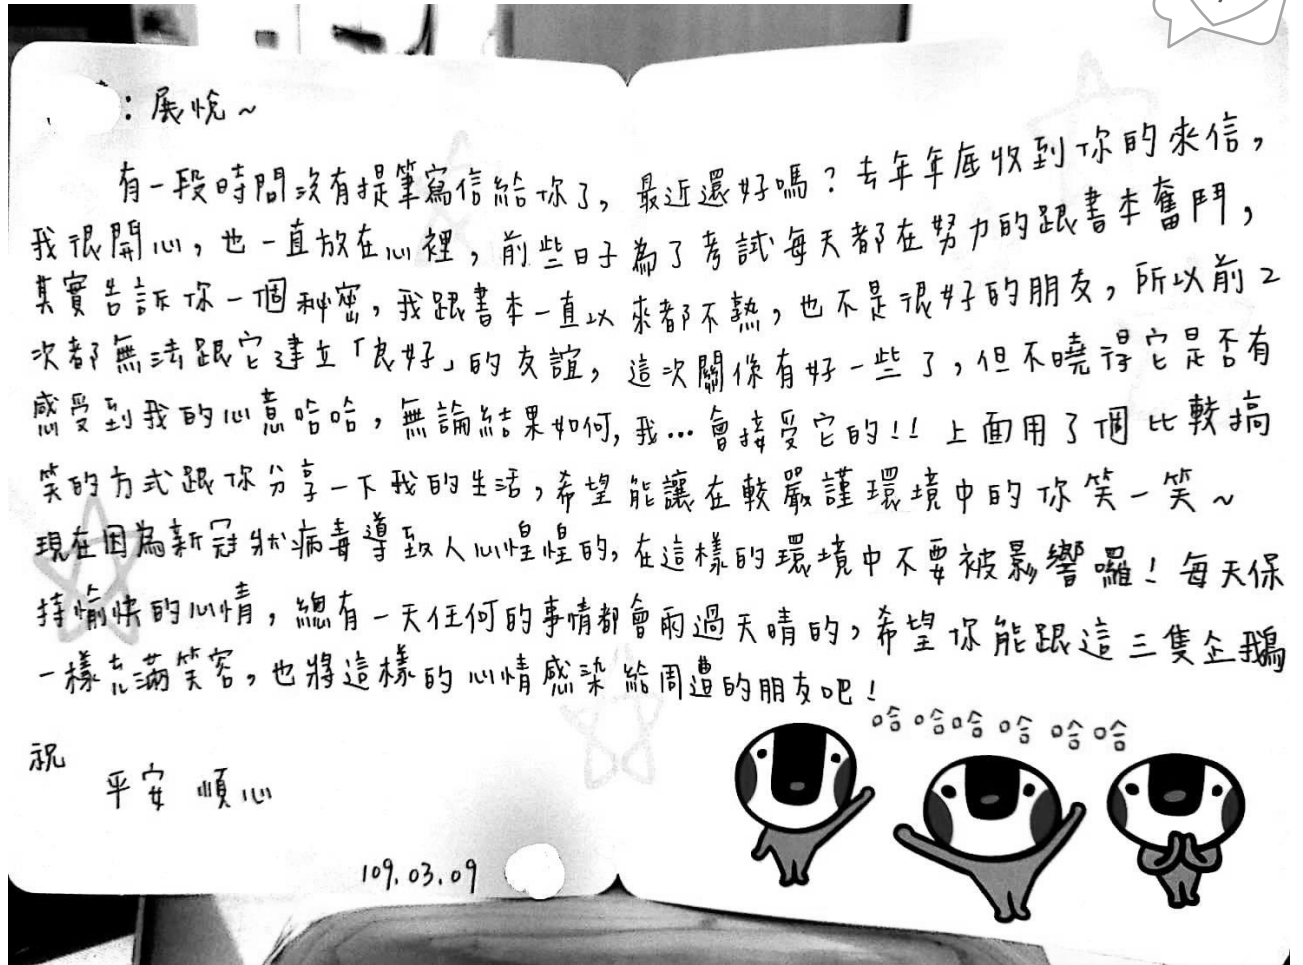 ：展悅~
有一段時間沒有提筆寫信給你了，最近還好嗎？去年年底收到你的來信，
我很開心，也一直放在心裡，前些日子為了考試每天都在努力的跟書本奮鬥，
其實告訴你一個秘密，我跟書本一直以來都不熟，也不是很好的朋友，所以前2
次都無法跟它建立「良好」的友誼，這次關係有好一些了，但不曉得它是否有
感受到我的心意哈哈，無論結果如何，我…會接受它的!! 上面用了個比較搞
笑的方式跟你分享一下我的生活，希望能讓在較嚴謹環境中的你笑一笑~
現在因為新冠狀病毒導致人心惶惶的，在這樣的環境中不要被影響囉！每天保
持愉快的心情，總有一天任何的事情都會雨過天晴的，希望你能跟這三隻企鵝
一樣充滿笑容，也將這樣的心情感染給周遭的朋友吧！
哈哈哈哈哈哈
祝
平安 順心
109.03.09